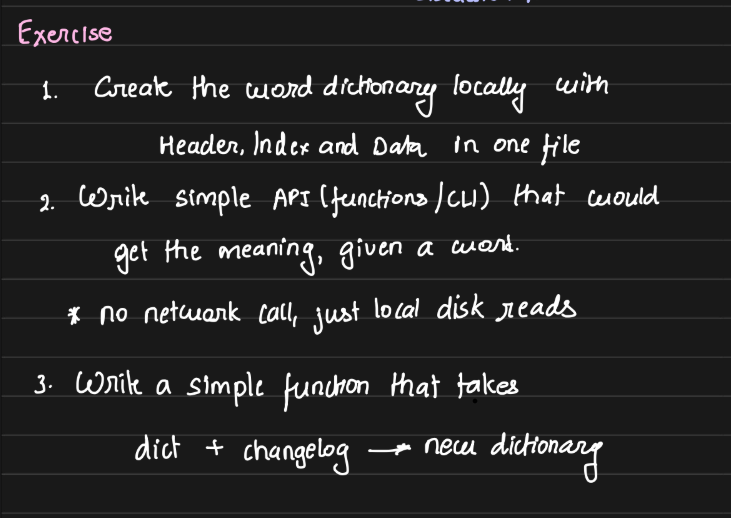 Exercise
1. Create the word dictionary locally with
Header, Index and Data in one file
2. Write simple API (functions/CLI) that would
get the meaning, given a word.
* no network call, just local disk reads
3. Write a simple function that takes
dict + changelog → new dictionary